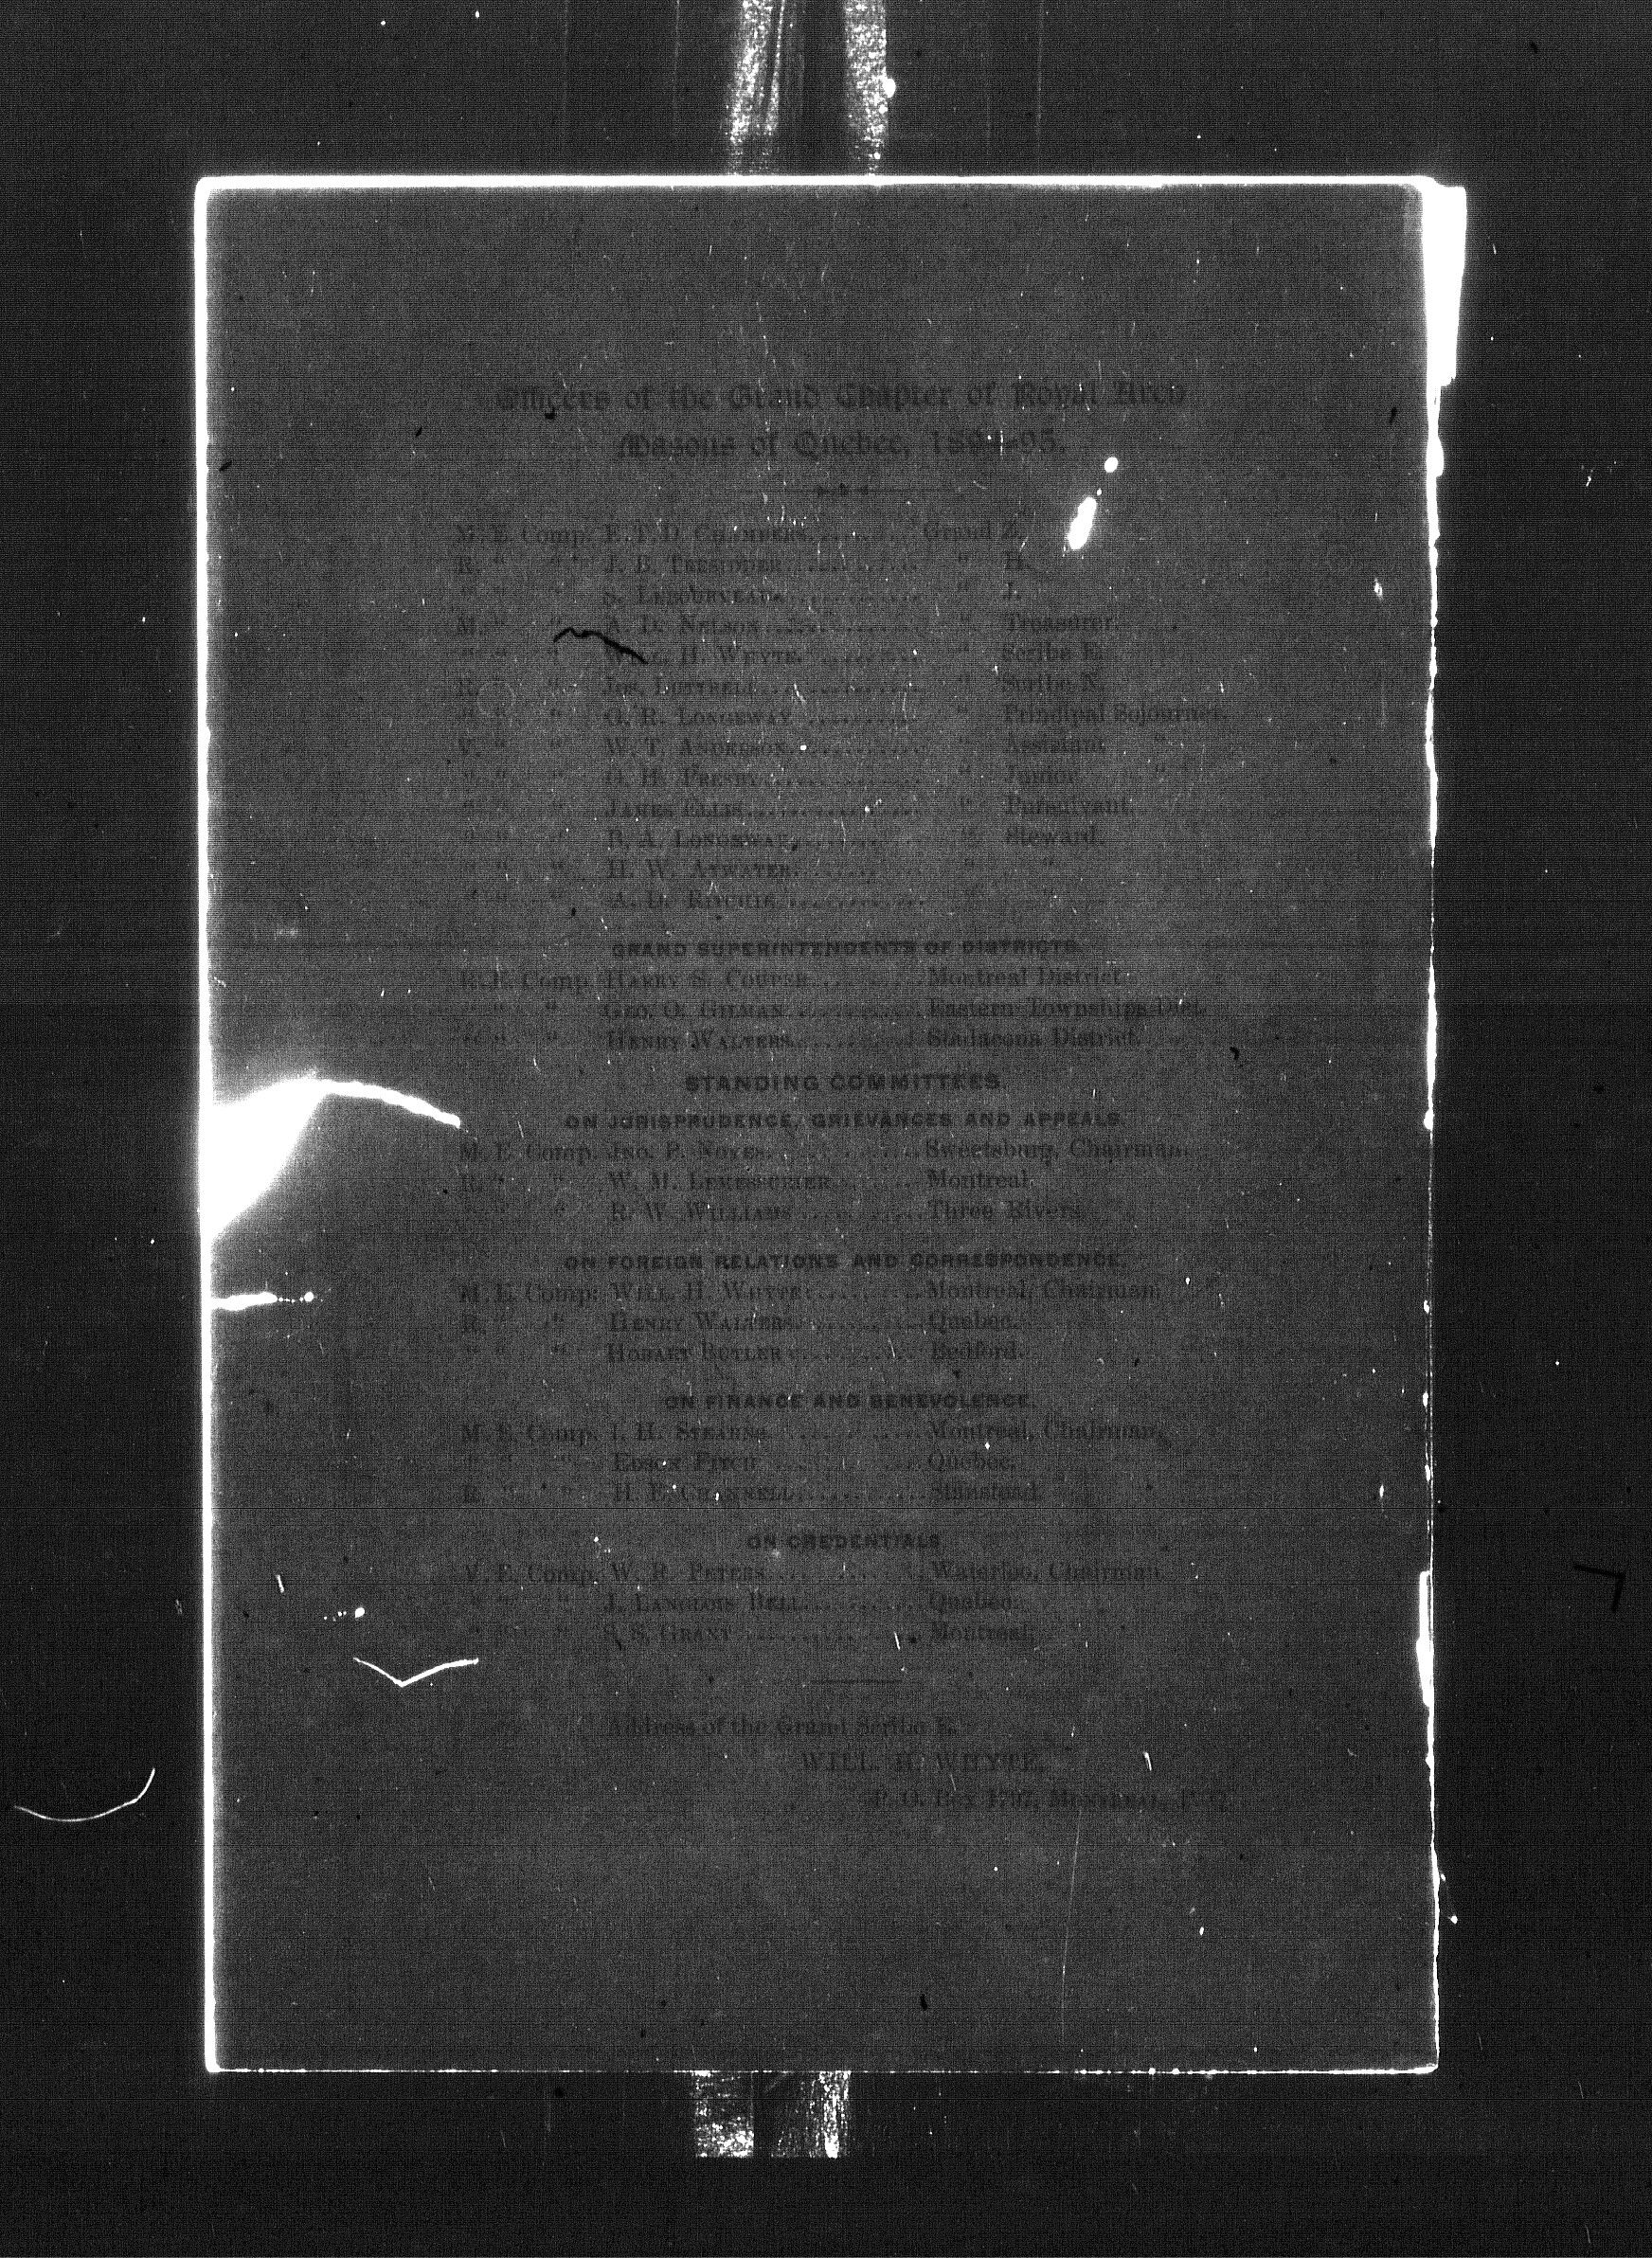 Officers of the Grand Chapter of Royal Arch
Masons of Quebec, 1894-95.
M. E. Comp. E. T. D. CHAMBERS........ Grand Z.
R. " " J. B. TRESIDDER............ " H.
" " " S. LEBOURVEAU............ " J.
M. " " A. D. NELSON............ " Treasurer.
" " " WILL. H. WHYTE......... " Scribe E.
R. " " JOS. LUTTRELL............ " Scribe N.
" " " G. R. LONGEWAY.......... " Principal Sojourner.
V. " " W. T. ANDERSON............ " Assistant "
" " " G. H. PRESBY............ " Junior "
" " " JAMES ELLIS............ " Pursuivant.
" " " B. A. LONGEWAY............ " Steward.
" " " H. W. ATWATER........ " "
" " " A. D. RITCHIE............ " "
GRAND SUPERINTENDENTS OF DISTRICTS.
R. E. Comp. HARRY S. COUPER.........Montreal District.
" " " GEO. O. GILMAN............Eastern Townships Dist.
" " " HENRY WALTERS.........Stadacona District.
STANDING COMMITTEES.
ON JURISPRUDENCE, GRIEVANCES AND APPEALS.
M. E. Comp. JNO. P. NOYES............Sweetsburg, Chairman.
R. " " W. M. LEMESSURIER........Montreal.
" " " R. W. WILLIAMS............Three Rivers.
ON FOREIGN RELATIONS AND CORRESPONDENCE.
M. E. Comp. WILL. H. WHYTE.........Montreal, Chairman.
R. " " HENRY WALTERS............Quebec.
" " " HOBART BUTLER............Bedford.
ON FINANCE AND BENEVOLENCE.
M. E. Comp. I. H. STEARNS............Montreal, Chairman.
" " " EDSON FITCH............Quebec.
R. " " H. E. CHANNELL............Stanstead.
ON CREDENTIALS.
V. E. Comp. W. R. PETERS............Waterloo, Chairman.
" " " J. LANGLOIS BELL............Quebec.
" " " S. S. GRANT............Montreal.
Address of the Grand Scribe E.
WILL. H. WHYTE,
P. O. Box 1797, MONTREAL, P. Q.